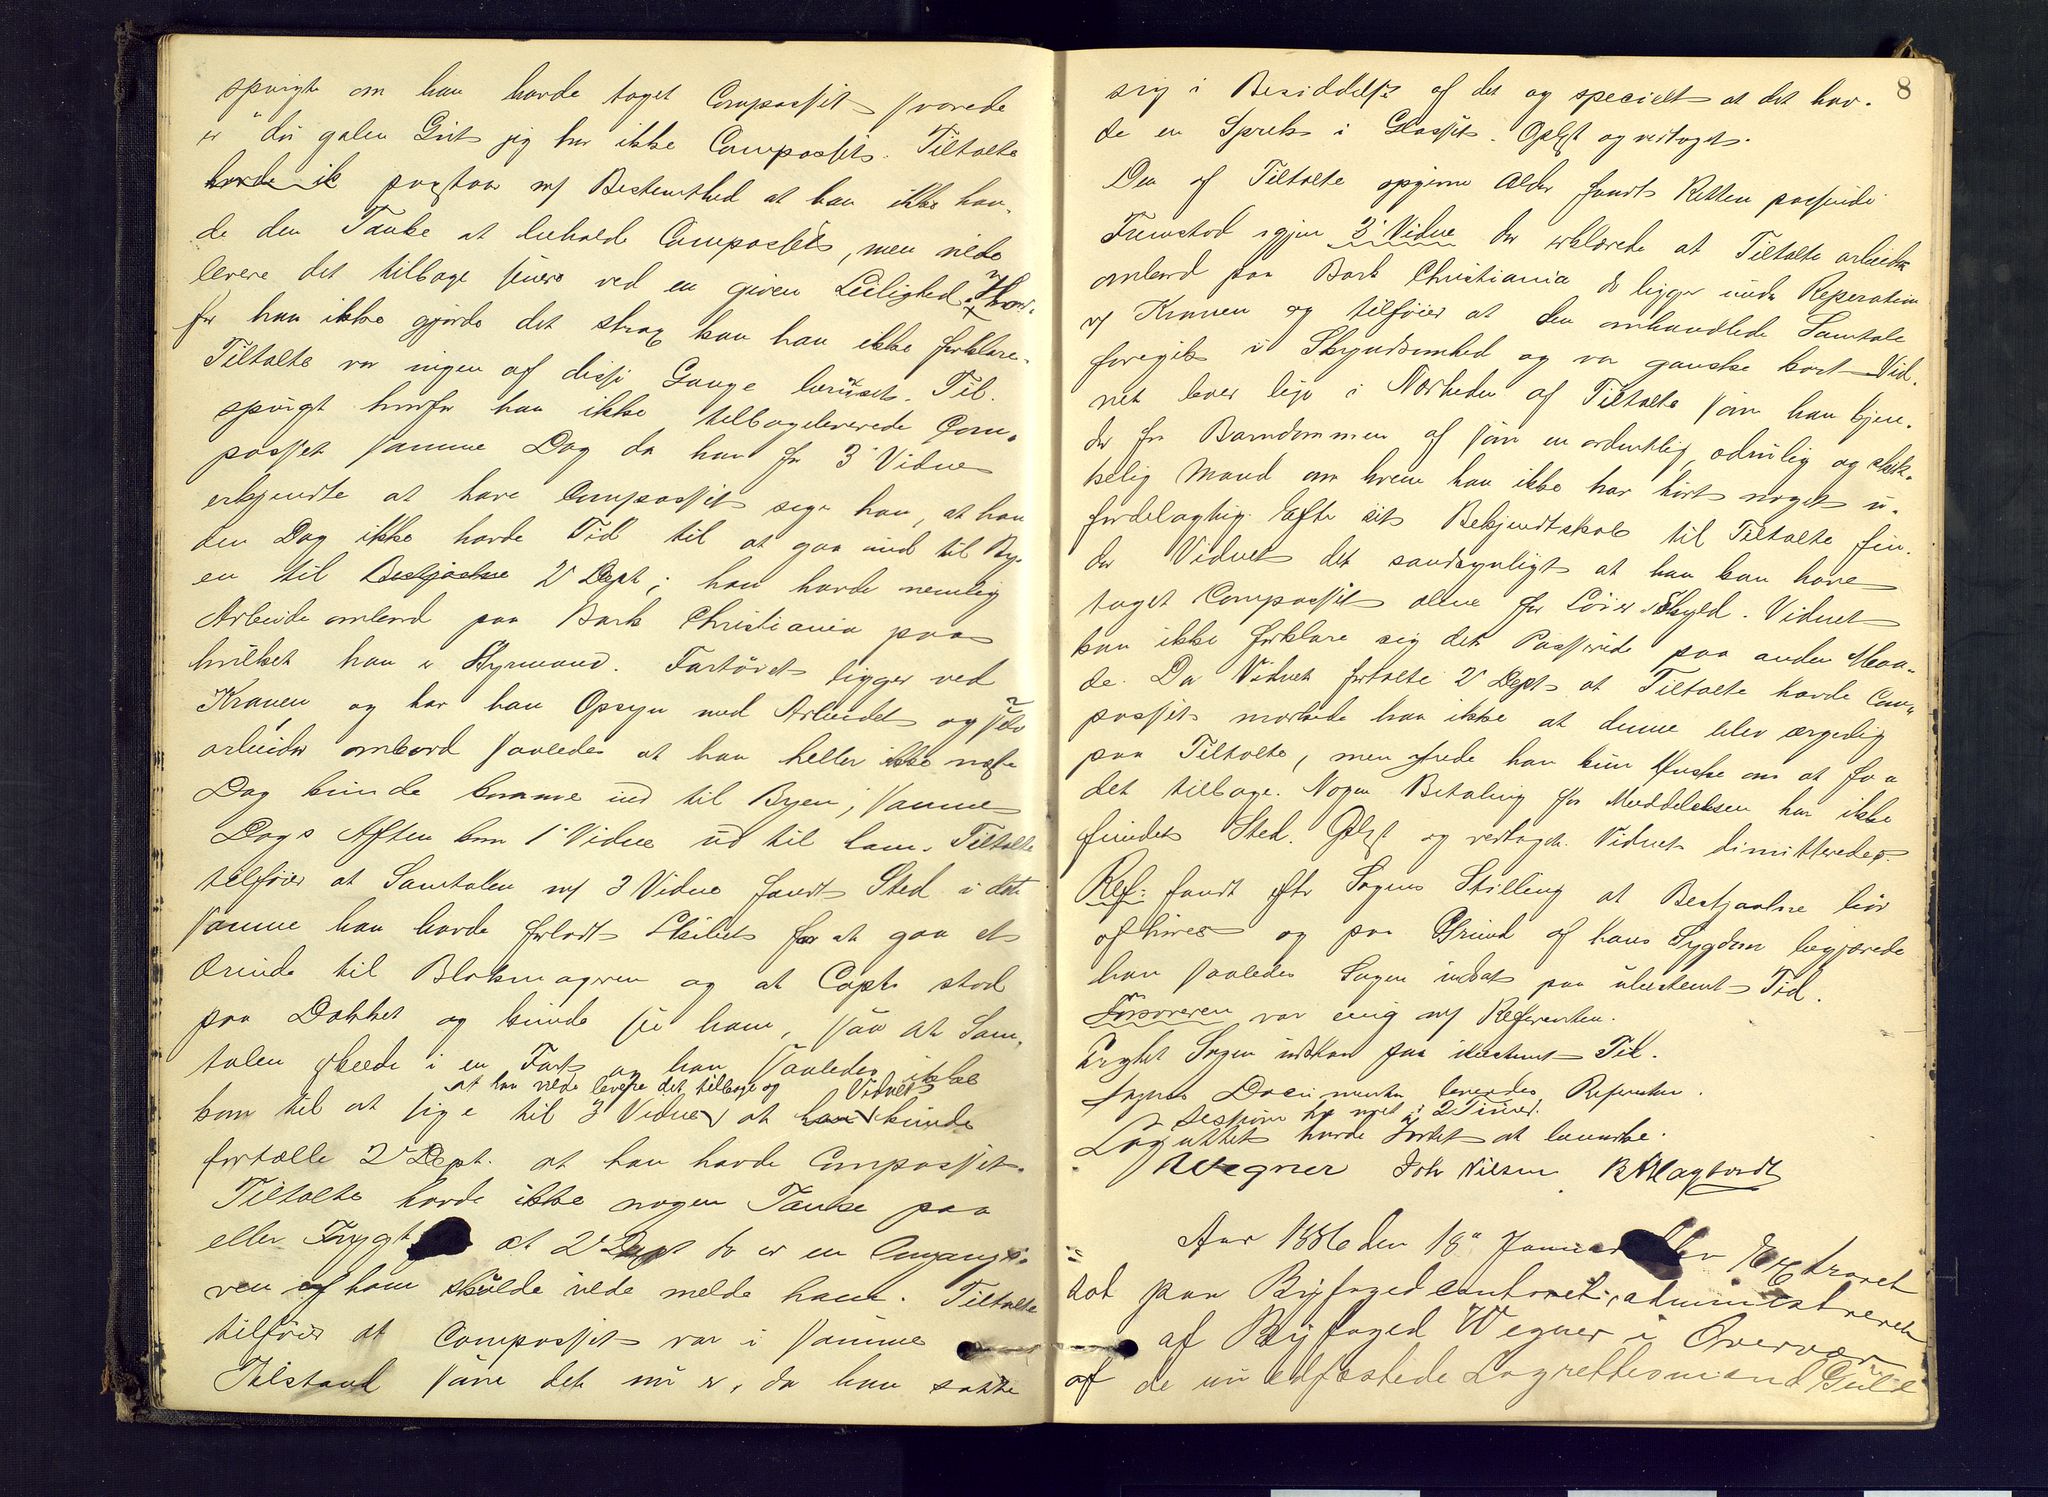 spurgte om han havde taget Compasset svarede
er "du galen Gut jeg har ikke Compasset. Tiltalte
havde ik paastaar m/ Bestemthed at han ikke hav-
de den Tanke at beholde Compasset, men vilde
levere det tilbage senere ved en given Leilighed. Hvor-
for han ikke gjorde det strax kan han ikke forklare.
Tiltalte var ingen af disse Gange beruset. Til-
spurgt hvorfor han ikke tilbageleverede Com-
passet samme Dag da han for 3' Vidne
erkjendte at have Compasset siger han, at han
den Dag ikke havde Tid til at gaa ind til By-
en til Bestjaalne 2' Dept; han havde nemlig
Arbeide ombord paa Bark Christiania paa
hvilket han er Styrmand. Fartøiet ligger ved
Kranen og har han Opsyn med Arbeidet og selv
arbeider ombord saaledes at han heller ikke næste
Dag kunde komme ind til Byen; samme
Dags Aften kom 1' Vidne ud til ham. Tiltalte
tilføier at Samtalen m/ 3 Vidne fandt Sted i det
samme han havde forladt Skibet for at gaa et
Ærinde til Blokmageren og at Capt. stod
paa Dækket og kunde se ham, saa at Sam-
talen skede i en Fart og han saaledes ikke
at han vilde levere det tilbage og Vidnet
kom til at sige til 3 Vidne at han kunde
fortælle 2' Dept. at han havde Compasset.
Tiltalte havde ikke nogen Tanke paa
eller Frygt at 2' Dept der er en Omgangs-
ven af ham skulde ville melde ham. Tiltalte
tilføier at Compasset var i samme
Tilstand som det nu er, da han satte
8
sig i Besiddelse af det og specielt at det hav-
de en Spræk i Glasset. Oplæst og vedtaget.
Den af Tiltalte opgivne Alder fandt Retten passende
Fremstod igjen 3' Vidne der erklærede at Tiltalte arbeider
ombord paa Bark Christiania der ligger under Reperation
v/ Kranen og tilføier at den omhandlede Samtale
foregik i Skyndsomhed og var ganske kort. Vid-
net bover lige i Nærheden af Tiltalte som han kjen-
der fra Barndommen af som en ordentlig ædruelig og skik-
kelig Mand om hvem han ikke har hørt noget u-
fordelagtig. Efter sit Bekjendtskab til Tiltalte fin-
der Vidnet det sandsynligt at han kan have
taget Compasset alene for Løiers Skyld. Vidnet
kan ikke forklare sig det Passerede paa anden Maa-
de. Da Vidnet fortalte 2' Dept at Tiltalte havde Com-
passet mærkede han ikke at denne blev ærgerlig
paa Tiltalte, men yttrede han kun Ønske om at faa
det tilbage. Nogen Betaling for Meddelelsen har ikke
fundet Sted. Oplæst og vedtaget. Vidnet dimitteredes.
Ref: fandt efter Sagens Stilling at Bestjaalne bør
afhøres og paa Grund af hans Sygdom begjærede
han saaledes Sagen udsat paa ubestemt Tid.
Forsvareren var enig m/ Referenten.
Sagen paa ubestemt Tid.
Sagens Documenter leveredes Referenten.
Sessionen har varet i 2 Timer.
Lagrettet havde Intet at bemærke.
Wegner Joh Nilsen
Aar 1886 den 18' Januar blev Extraret
sat paa Byfogedcontoret, administreret
af Byfoged Wegner i Overvær
af de uedfæstede Lagrettesmænd